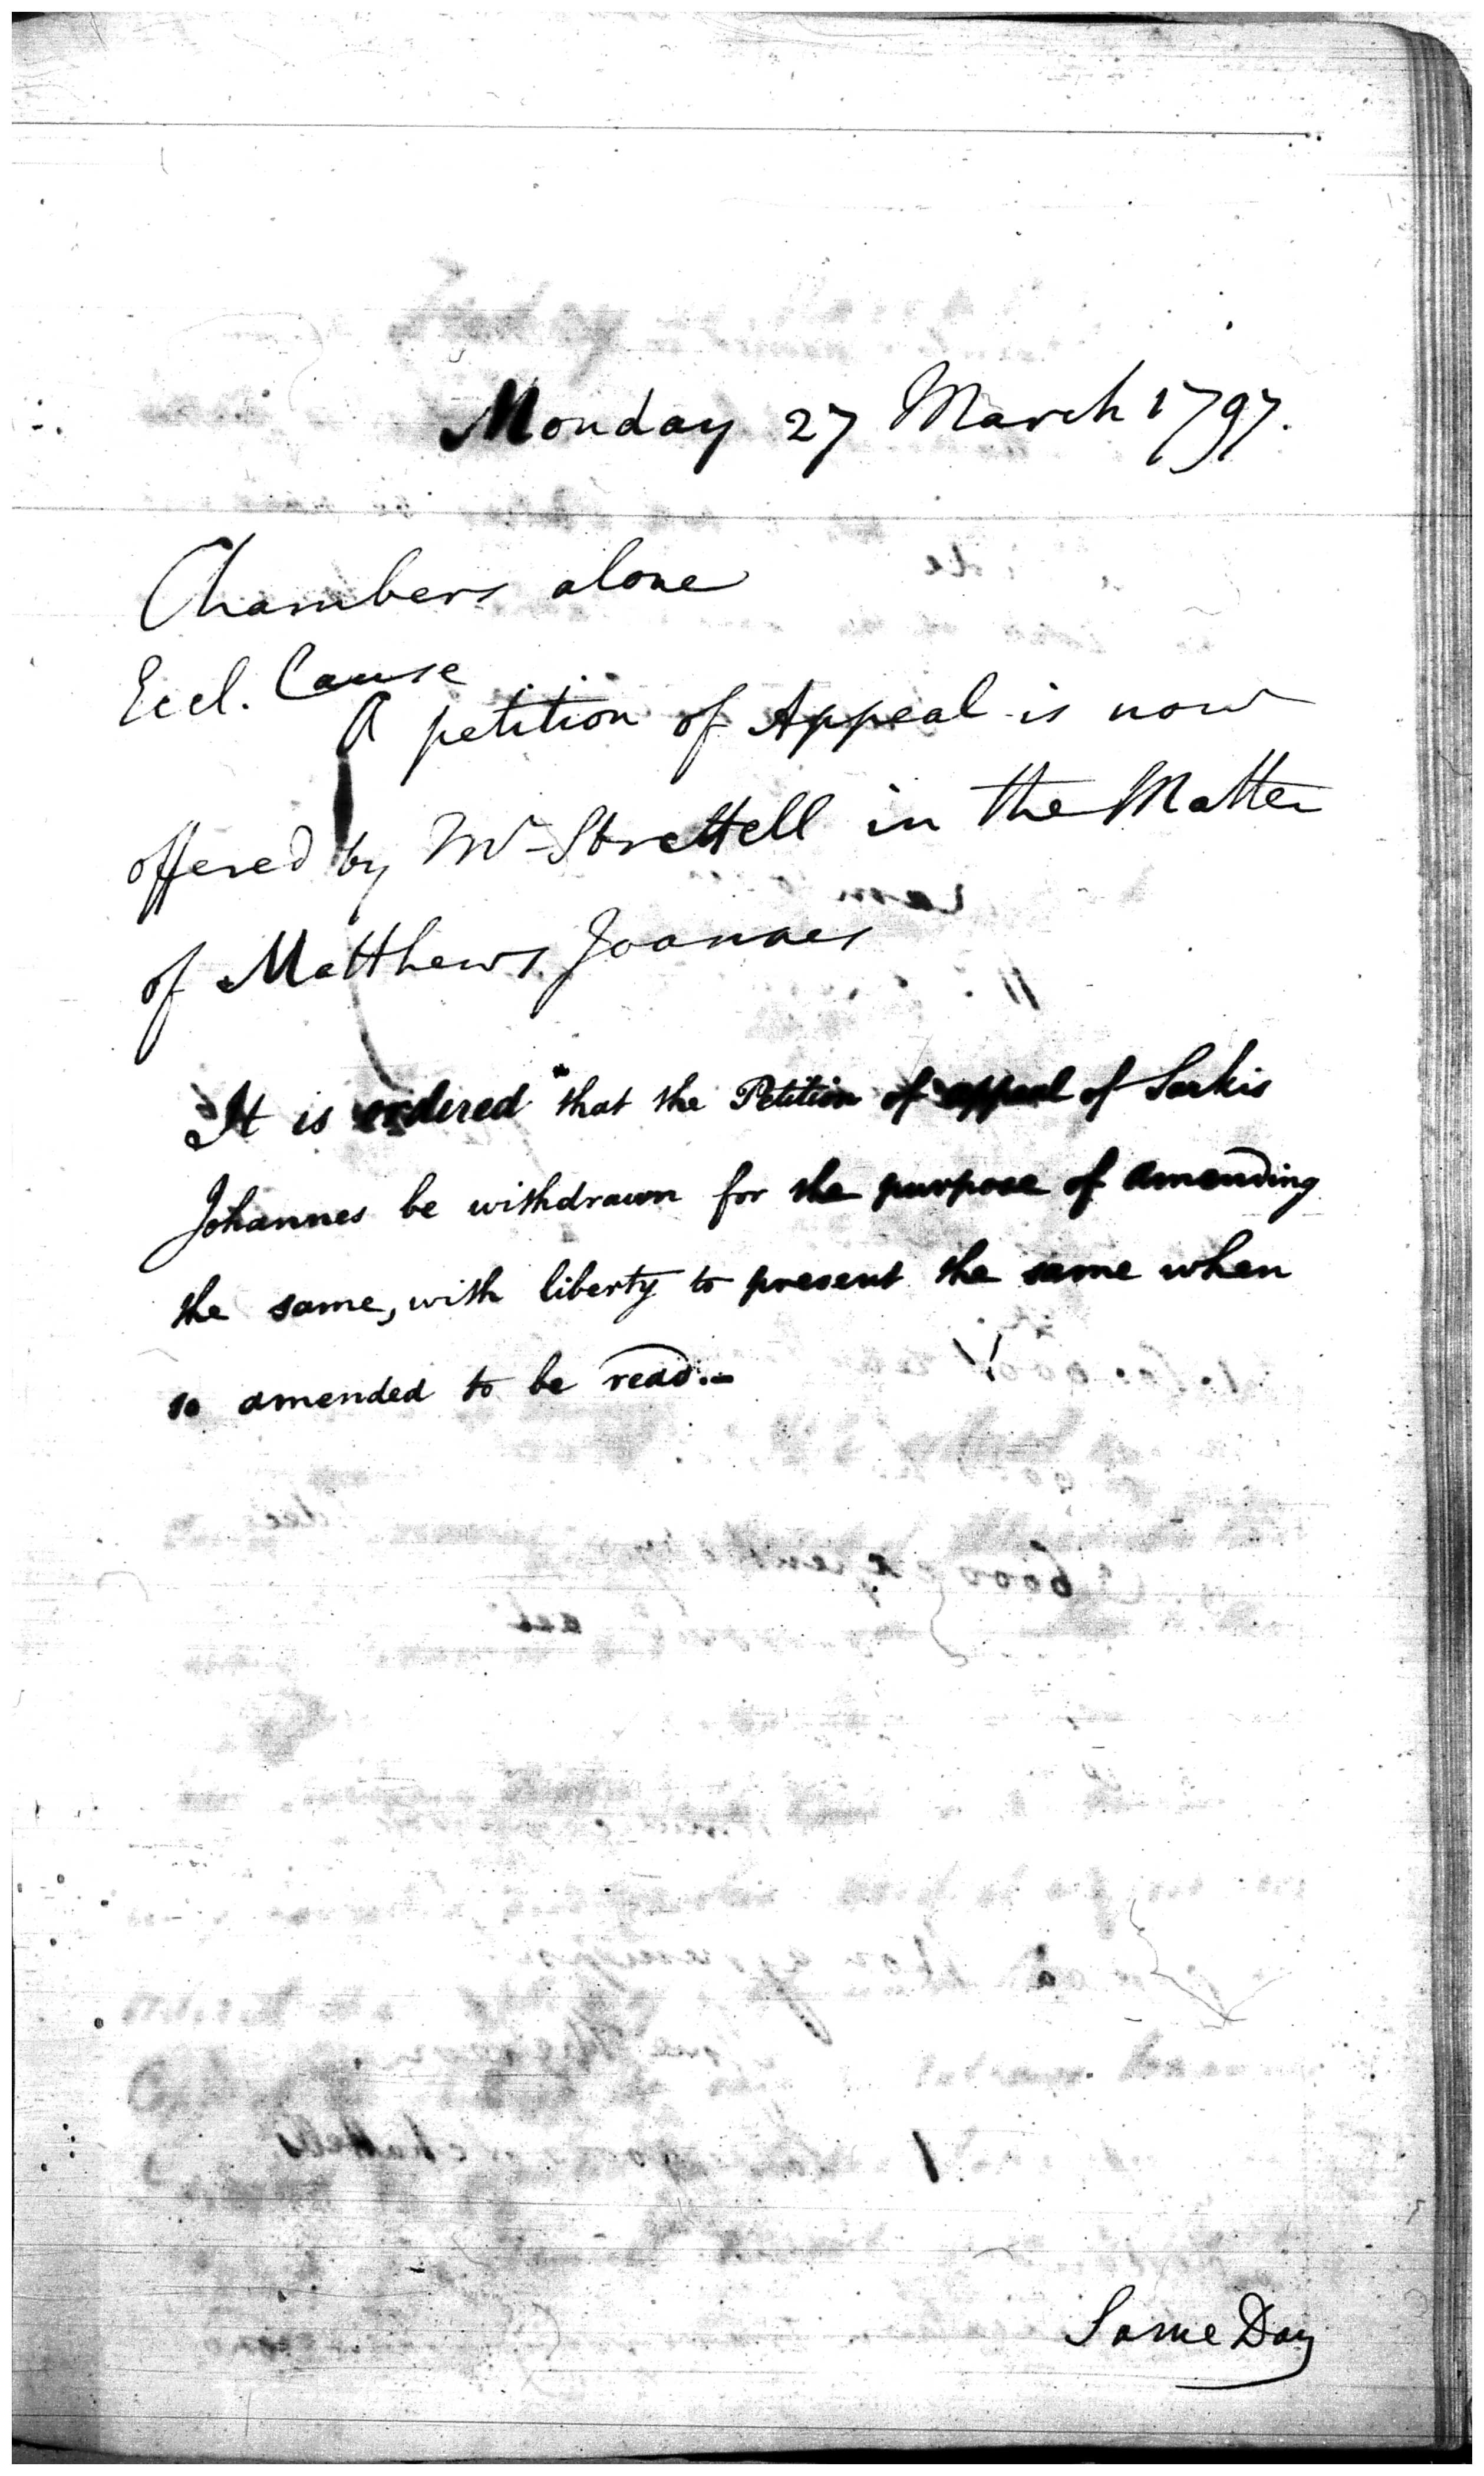 Monday 27 March 1797.
Chambers alone
Eccl. Cause
A petition of Appeal is now
offered by Mr Strettell in the Matter
of Matthews Joannes
It is ordered that the Petition of appeal of Sarkis
Johannes be withdrawn for the purpose of amending
the same, with liberty to present the same when
so amended to be read.-
Same Day